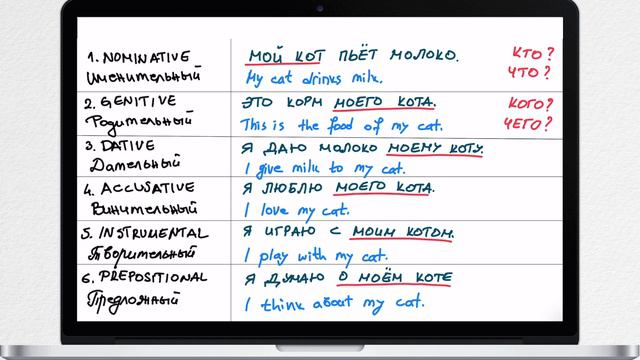 1. NOMINATIVE
Именительный
МОЙ КОТ ПЬЁТ МОЛОКО.
My cat drinks milk.
КТО?
ЧТО?
2. GENITIVE
Родительный
ЭТО КОРМ МОЕГО КОТА.
This is the food of my cat.
КОГО?
ЧЕГО?
3. DATIVE
Дательный
Я ДАЮ МОЛОКО МОЕМУ КОТУ.
I give milk to my cat.
4. ACCUSATIVE
Винительный
Я ЛЮБЛЮ МОЕГО КОТА.
I love my cat.
5. INSTRUMENTAL
Творительный
Я ИГРАЮ С МОИМ КОТОМ.
I play with my cat.
6. PREPOSITIONAL
Предложный
Я ДУМАЮ О МОЁМ КОТЕ
I think about my cat.